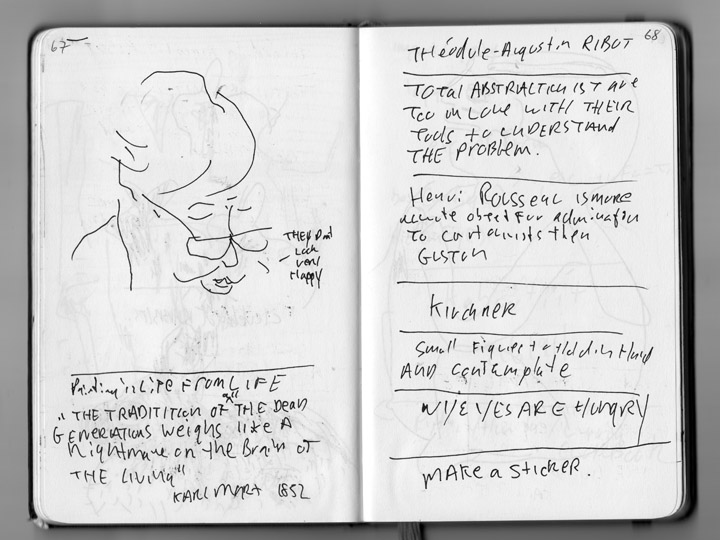 67
THEY Don't
Look
very
Happy
Painting is Life FROM LIFE
"THE TRADITITION OF THE Dead
GENERATIONS Weighs like A
Nightmare on the Brain of
THE LIVING"
KARL MARX 1852
68
THéodule-Augustin RIBOT
TOTAL ABSTRACTIONIST are
Too in Love WITH THEIR
Tools to UNDERSTAND
THE PROBLEM.
Henri ROUSSEAU is more
accurate object For admiration
To cartoonists then
GUSTON
Kirchner
Small Figures to Hold in Hand
AND contemplate
MY EYES ARE Hungry
MAKE a STICKER.